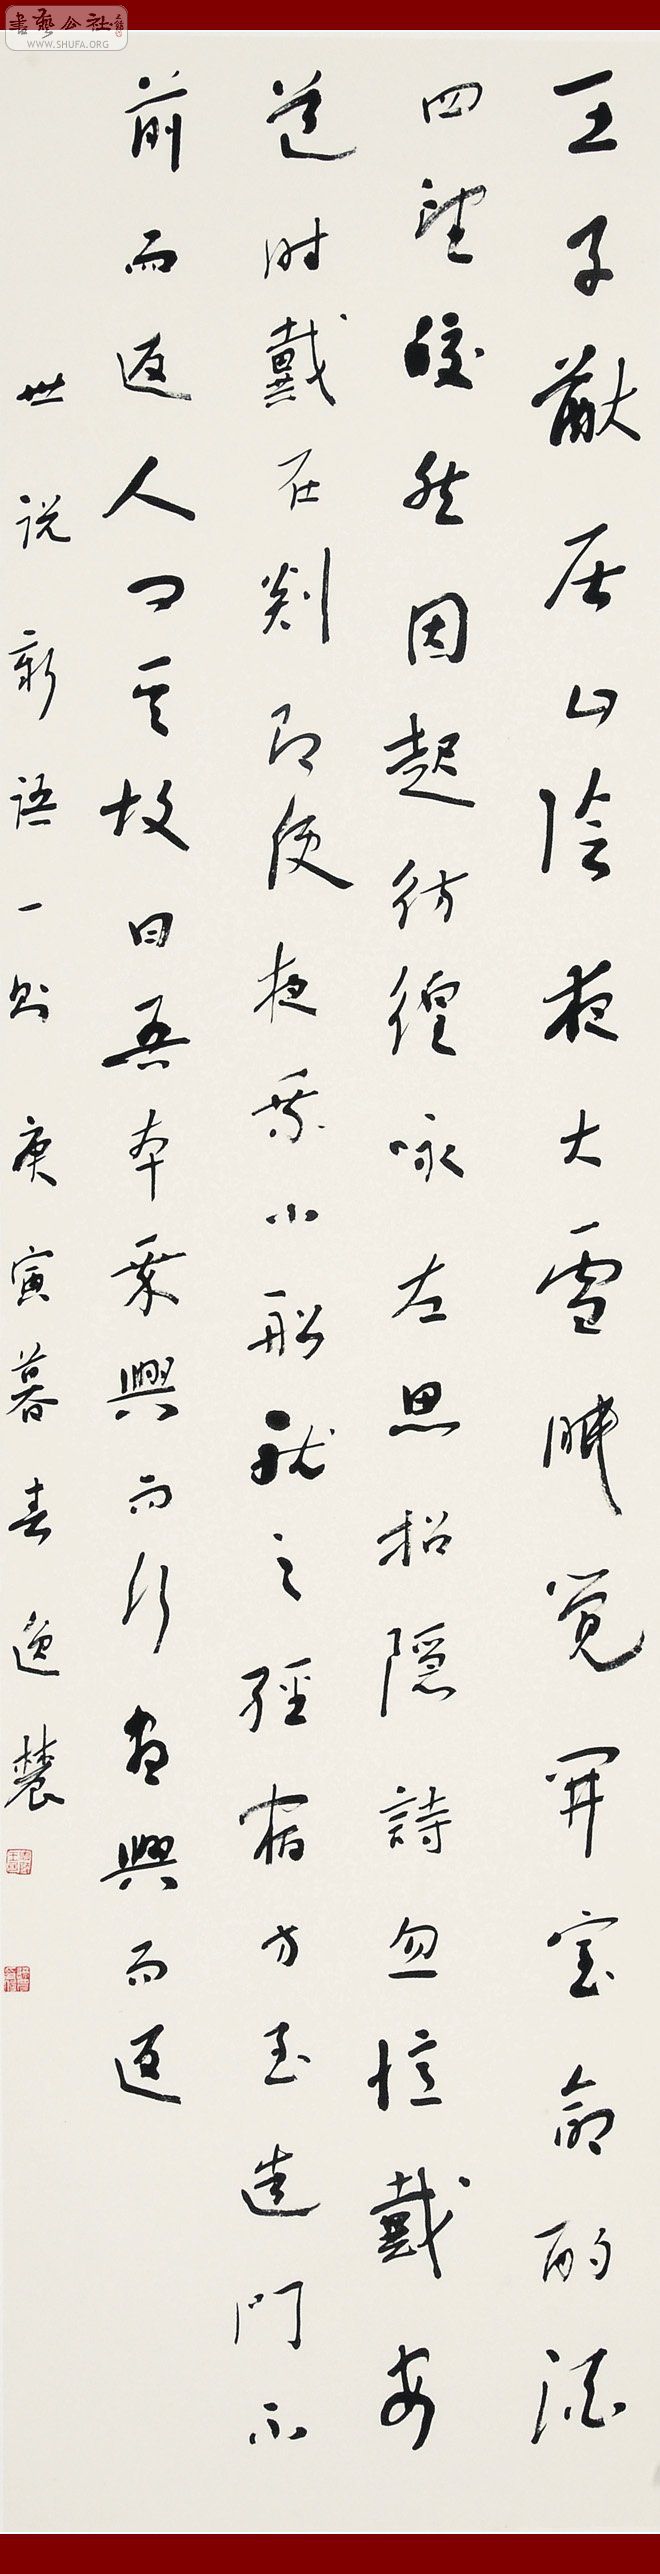 書藝公社
WWW.SHUFA.ORG
王子猷居山陰夜大雪眠觉開室命酌酒
四望皎然因起彷徨咏左思招隐詩忽憶戴安
道时戴在剡即便夜乘小船就之經宿方至造門不
前而返人问其故曰吾本乘興而行尽興而返
世说新语一则庚寅暮春逸